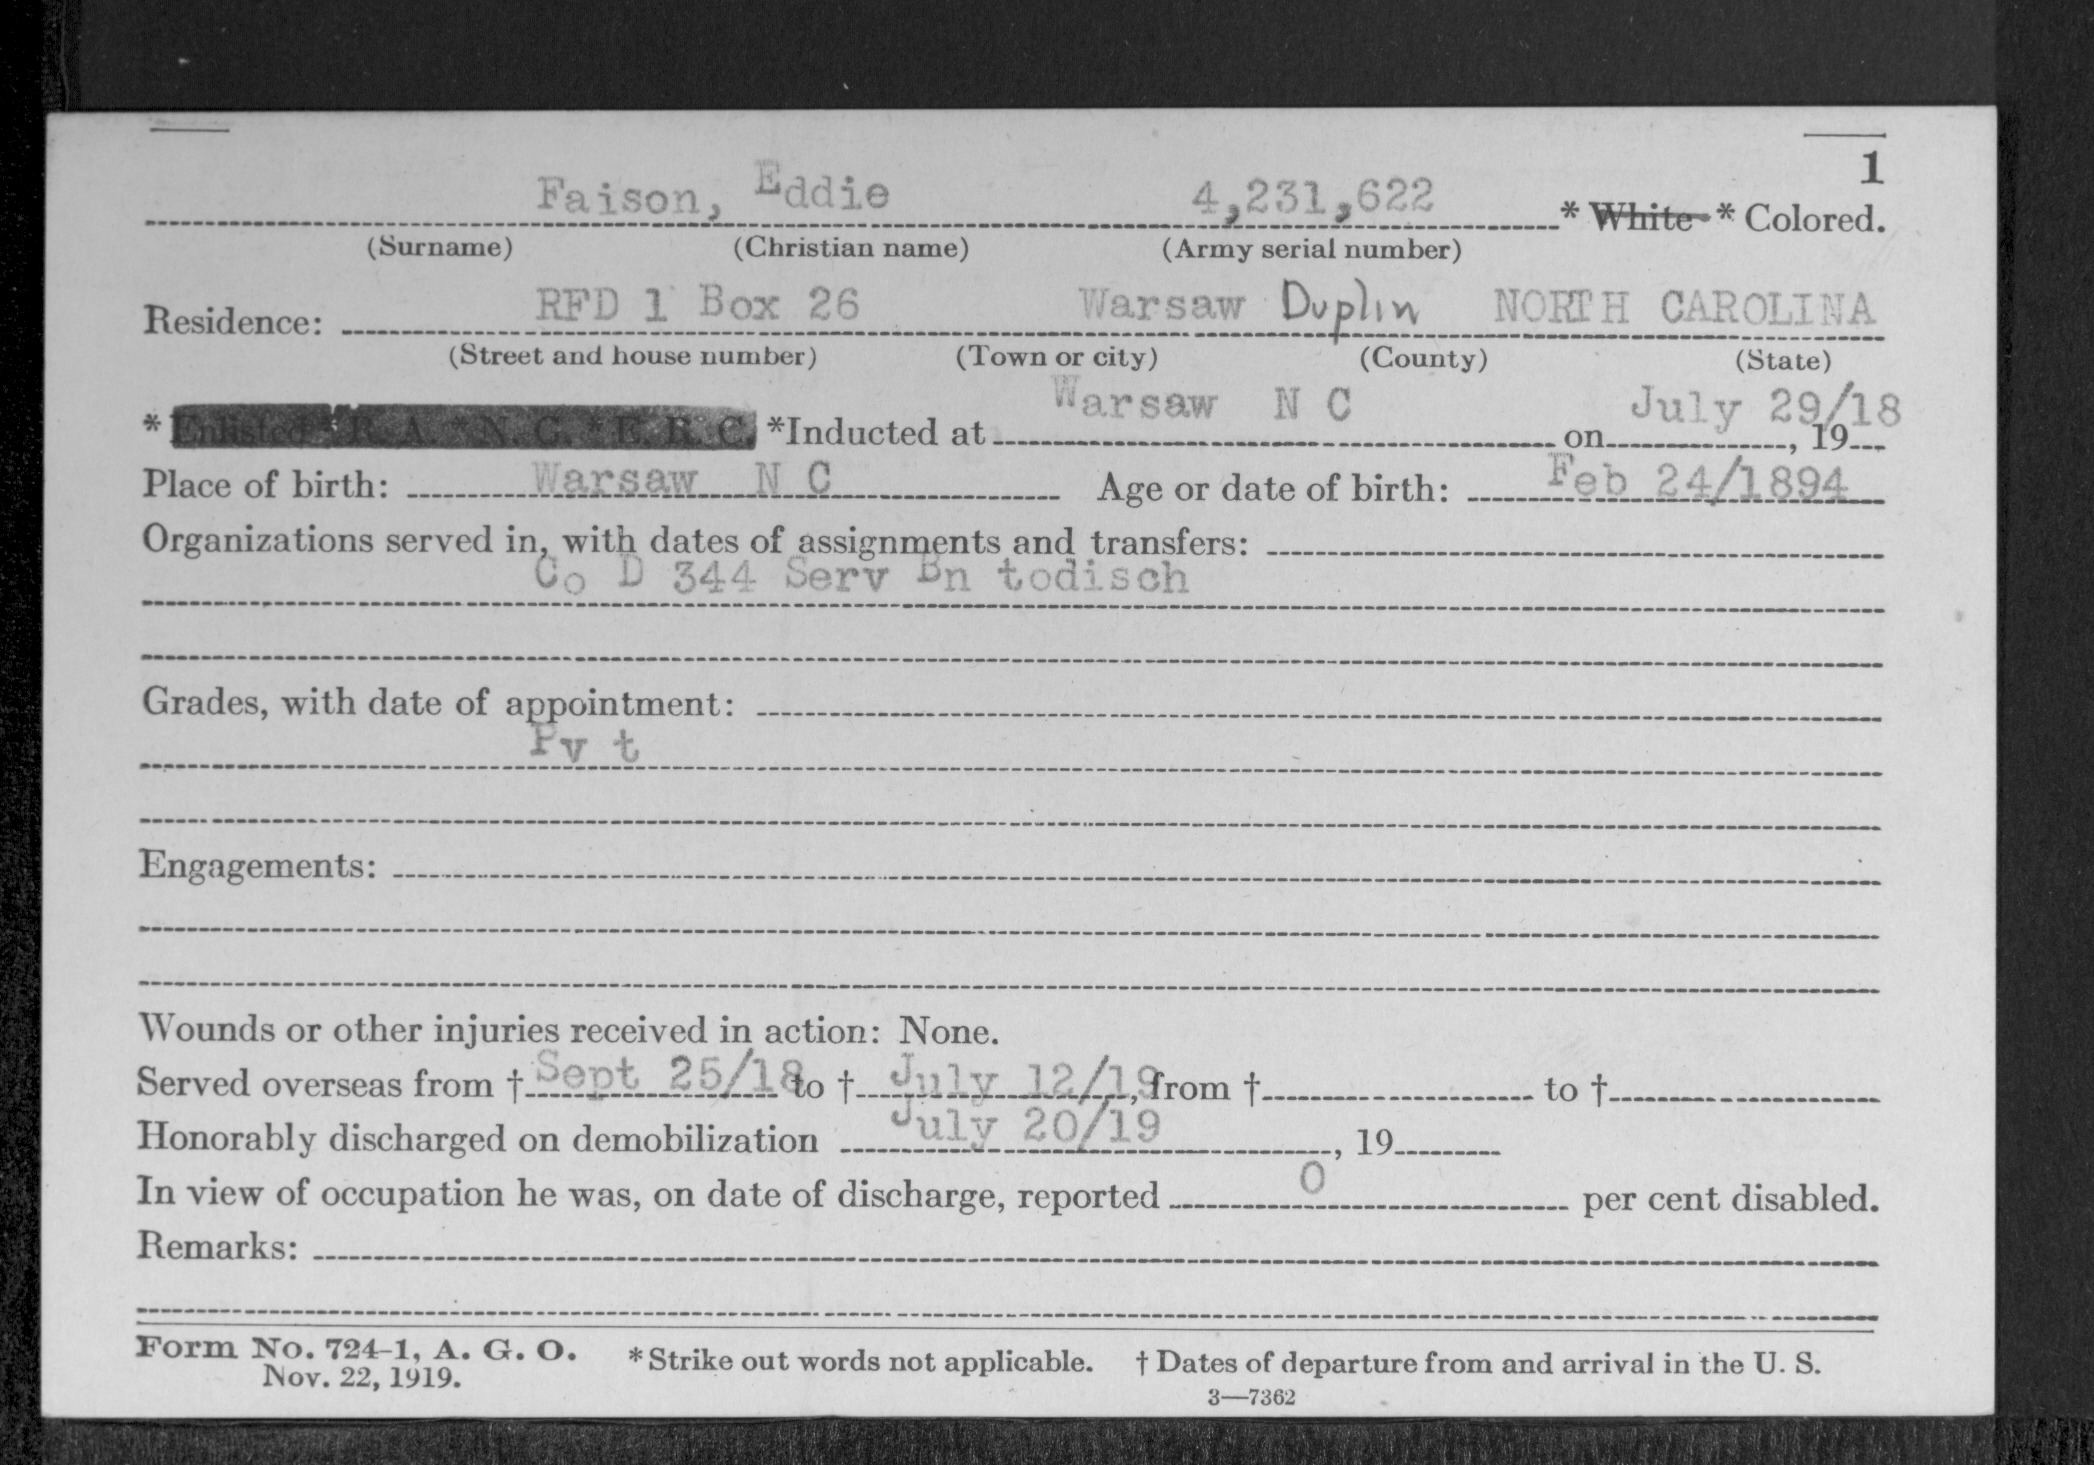 1
Faison, Eddie 4,231,622 * White * Colored.
(Surname) (Christian name) (Army serial number)
Residence: RFD 1 Box 26 Warsaw Duplin NORTH CAROLINA
(Street and house number) (Town or city) (County) (State)
* Enlisted * R. A. * N. G. * E. R. C. *Inducted at Warsaw N C on July 29/18, 19
Place of birth: Warsaw N C Age or date of birth: Feb 24/1894
Organizations served in, with dates of assignments and transfers:
Co D 344 Serv Bn todisch
Grades, with date of appointment:
Pv t
Engagements:
Wounds or other injuries received in action: None.
Served overseas from † Sept 25/18 to † July 12/19, from † to †
Honorably discharged on demobilization July 20/19, 19
In view of occupation he was, on date of discharge, reported 0 per cent disabled.
Remarks:
Form No. 724-1, A. G. O. * Strike out words not applicable. † Dates of departure from and arrival in the U. S.
Nov. 22, 1919.
3—7362